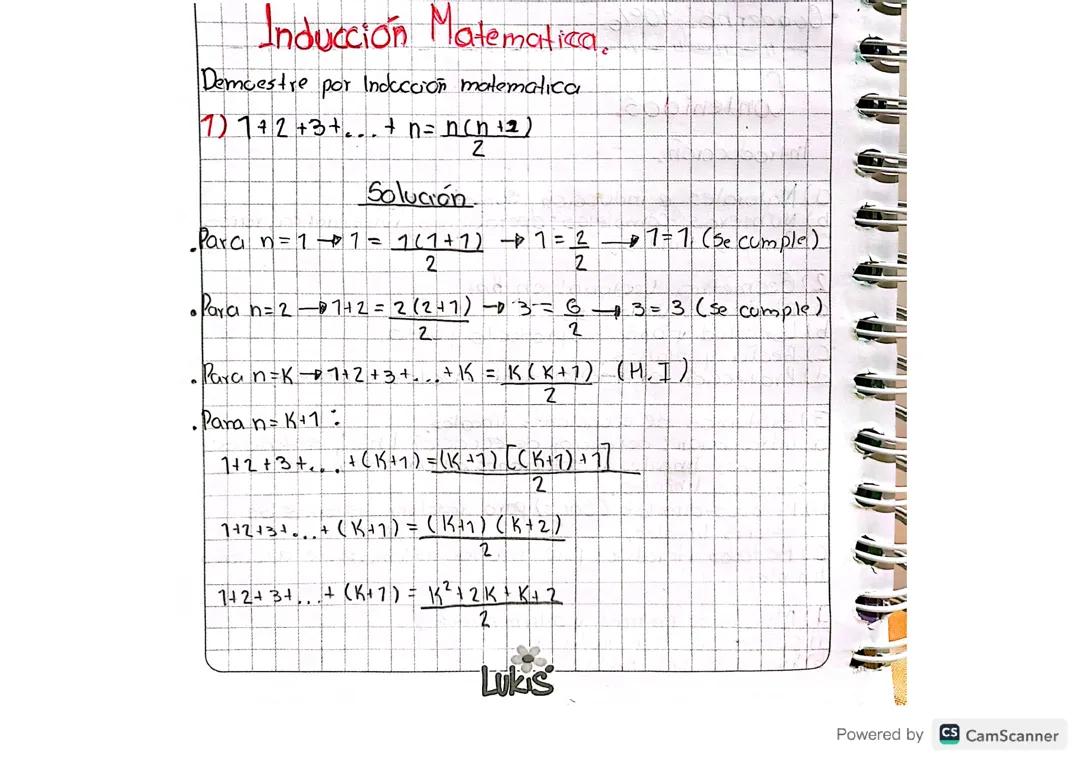 Inducción Matematica.
Demuestre por Inducción matematica
1) 1+2+3+...+ n = n(n+2)/2
Solución
. Para n=1 → 1 = 1(1+1)/2 → 1 = 2/2 → 1=1 (Se cumple)
. Para n=2 → 1+2 = 2(2+1)/2 → 3 = 6/2 → 3=3 (Se cumple)
. Para n=K → 1+2+3+...+K = K(K+1)/2 (H.I)
. Para n=K+1:
1+2+3+...+(K+1) = (K+1)[(K+1)+1]/2
1+2+3+...+(K+1) = (K+1)(K+2)/2
1+2+3+...+(K+1) = K²+2K+K+2/2
Lukis
Powered by CS CamScanner